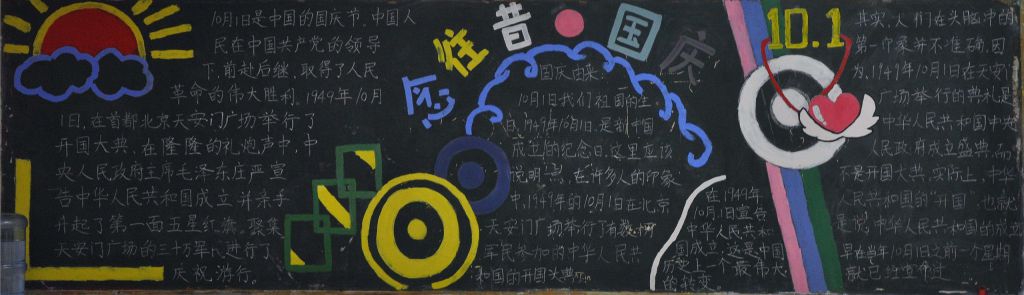 10月1日是中国的国庆节,中国人
民在中国共产党的领导
下,前赴后继,取得了人民
革命的伟大胜利,1949年10月
1日,在首都北京天安门广场举行了
开国大典,在隆隆的礼炮声中,中
央人民政府主席毛泽东庄严宣
告中华人民共和国成立并亲手
升起了第一面五星红旗.聚集
天安门广场的三十万军,进行了
庆祝游行.
往昔·国庆
国庆由来
10月1日我们祖国的生
日,1949年10月1日,是新中国
成立的纪念日,这里应该
说明一点,在许多人的印象
中,1949年的10月1日在北京
天安门广场举行了有数
军民参加的中华人民共
和国的开国大典
在1949年
10月1日宣告
中华人民共和
国成立,这是中国
历史上一个最伟大
的转变.
10.1
其实,人们在头脑中的
第一印象并不准确,因
为,1949年10月1日在天安门
广场举行的典礼是
中华人民共和国中央
人民政府成立盛典,而
不是开国大典,实际上,中华
人民共和国的"开国",也就
是说,中华人民共和国的成立
早在当年10月1日之前一个星期
就已经宣布过